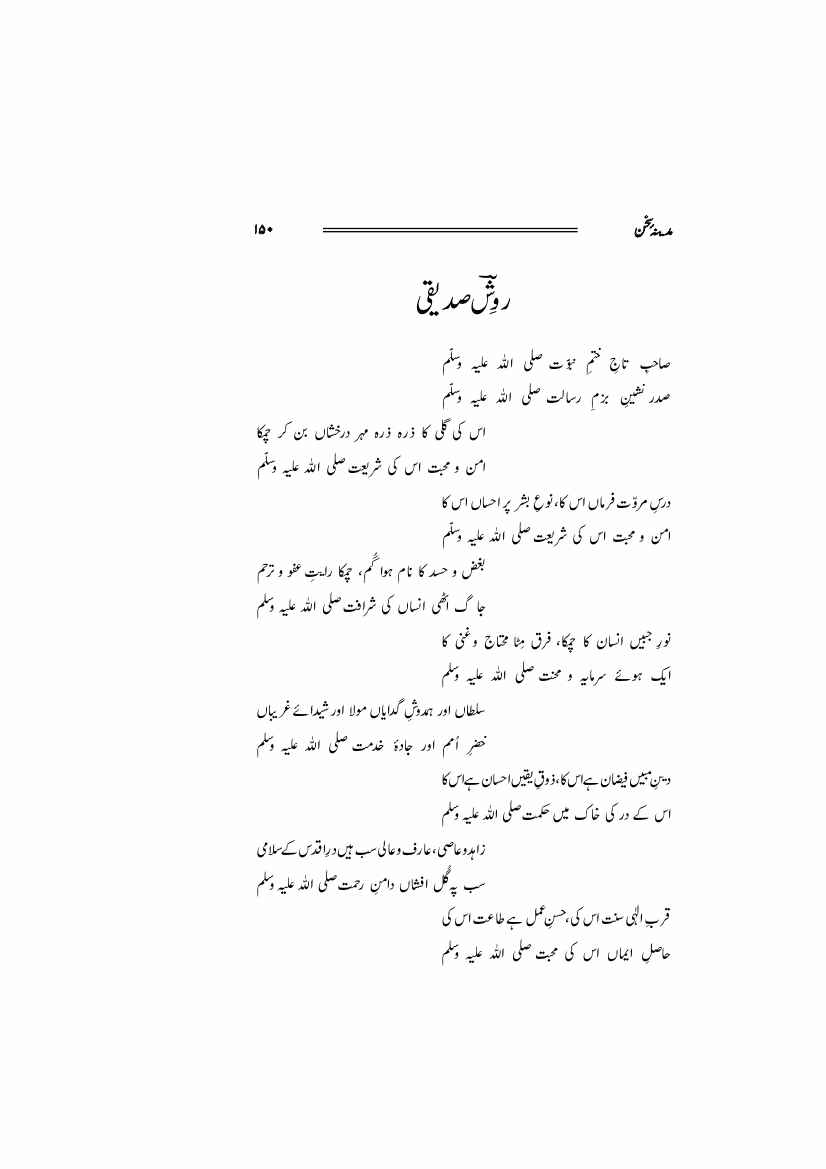 مدینۂ سخن ۱۵۰
روشؔ صدیقی
صاحبِ تاجِ ختمِ نبوّت صلی اللہ علیہ وسلّم
صدر نشینِ بزمِ رسالت صلی اللہ علیہ وسلّم
اس کی گلی کا ذرہ ذرہ مہر درخشاں بن کر چمکا
امن و محبت اس کی شریعت صلی اللہ علیہ وسلّم
درسِ مروّت فرماں اس کا، نوعِ بشر پر احساں اس کا
امن و محبت اس کی شریعت صلی اللہ علیہ وسلّم
بغض و حسد کا نام ہوا گُم، چمکا رایتِ عفو و ترحم
جاگ اٹھی انساں کی شرافت صلی اللہ علیہ وسلم
نورِ جبیں انسان کا چمکا، فرق مِٹا محتاج و غنی کا
ایک ہوئے سرمایہ و محنت صلی اللہ علیہ وسلم
سلطاں اور ہمدوشِ گدایاں مولا اور شیدائے غریباں
خضرِ اُمم اور جادۂ خدمت صلی اللہ علیہ وسلم
دینِ مبیں فیضان ہے اس کا، ذوقِ یقیں احسان ہے اس کا
اس کے در کی خاک میں حکمت صلی اللہ علیہ وسلم
زاہد و عاصی، عارف و عالی سب ہیں درِ اقدس کے سلامی
سب پہ گُل افشاں دامنِ رحمت صلی اللہ علیہ وسلم
قربِ الٰہی سنت اس کی، حسنِ عمل ہے طاعت اس کی
حاصلِ ایماں اس کی محبت صلی اللہ علیہ وسلم